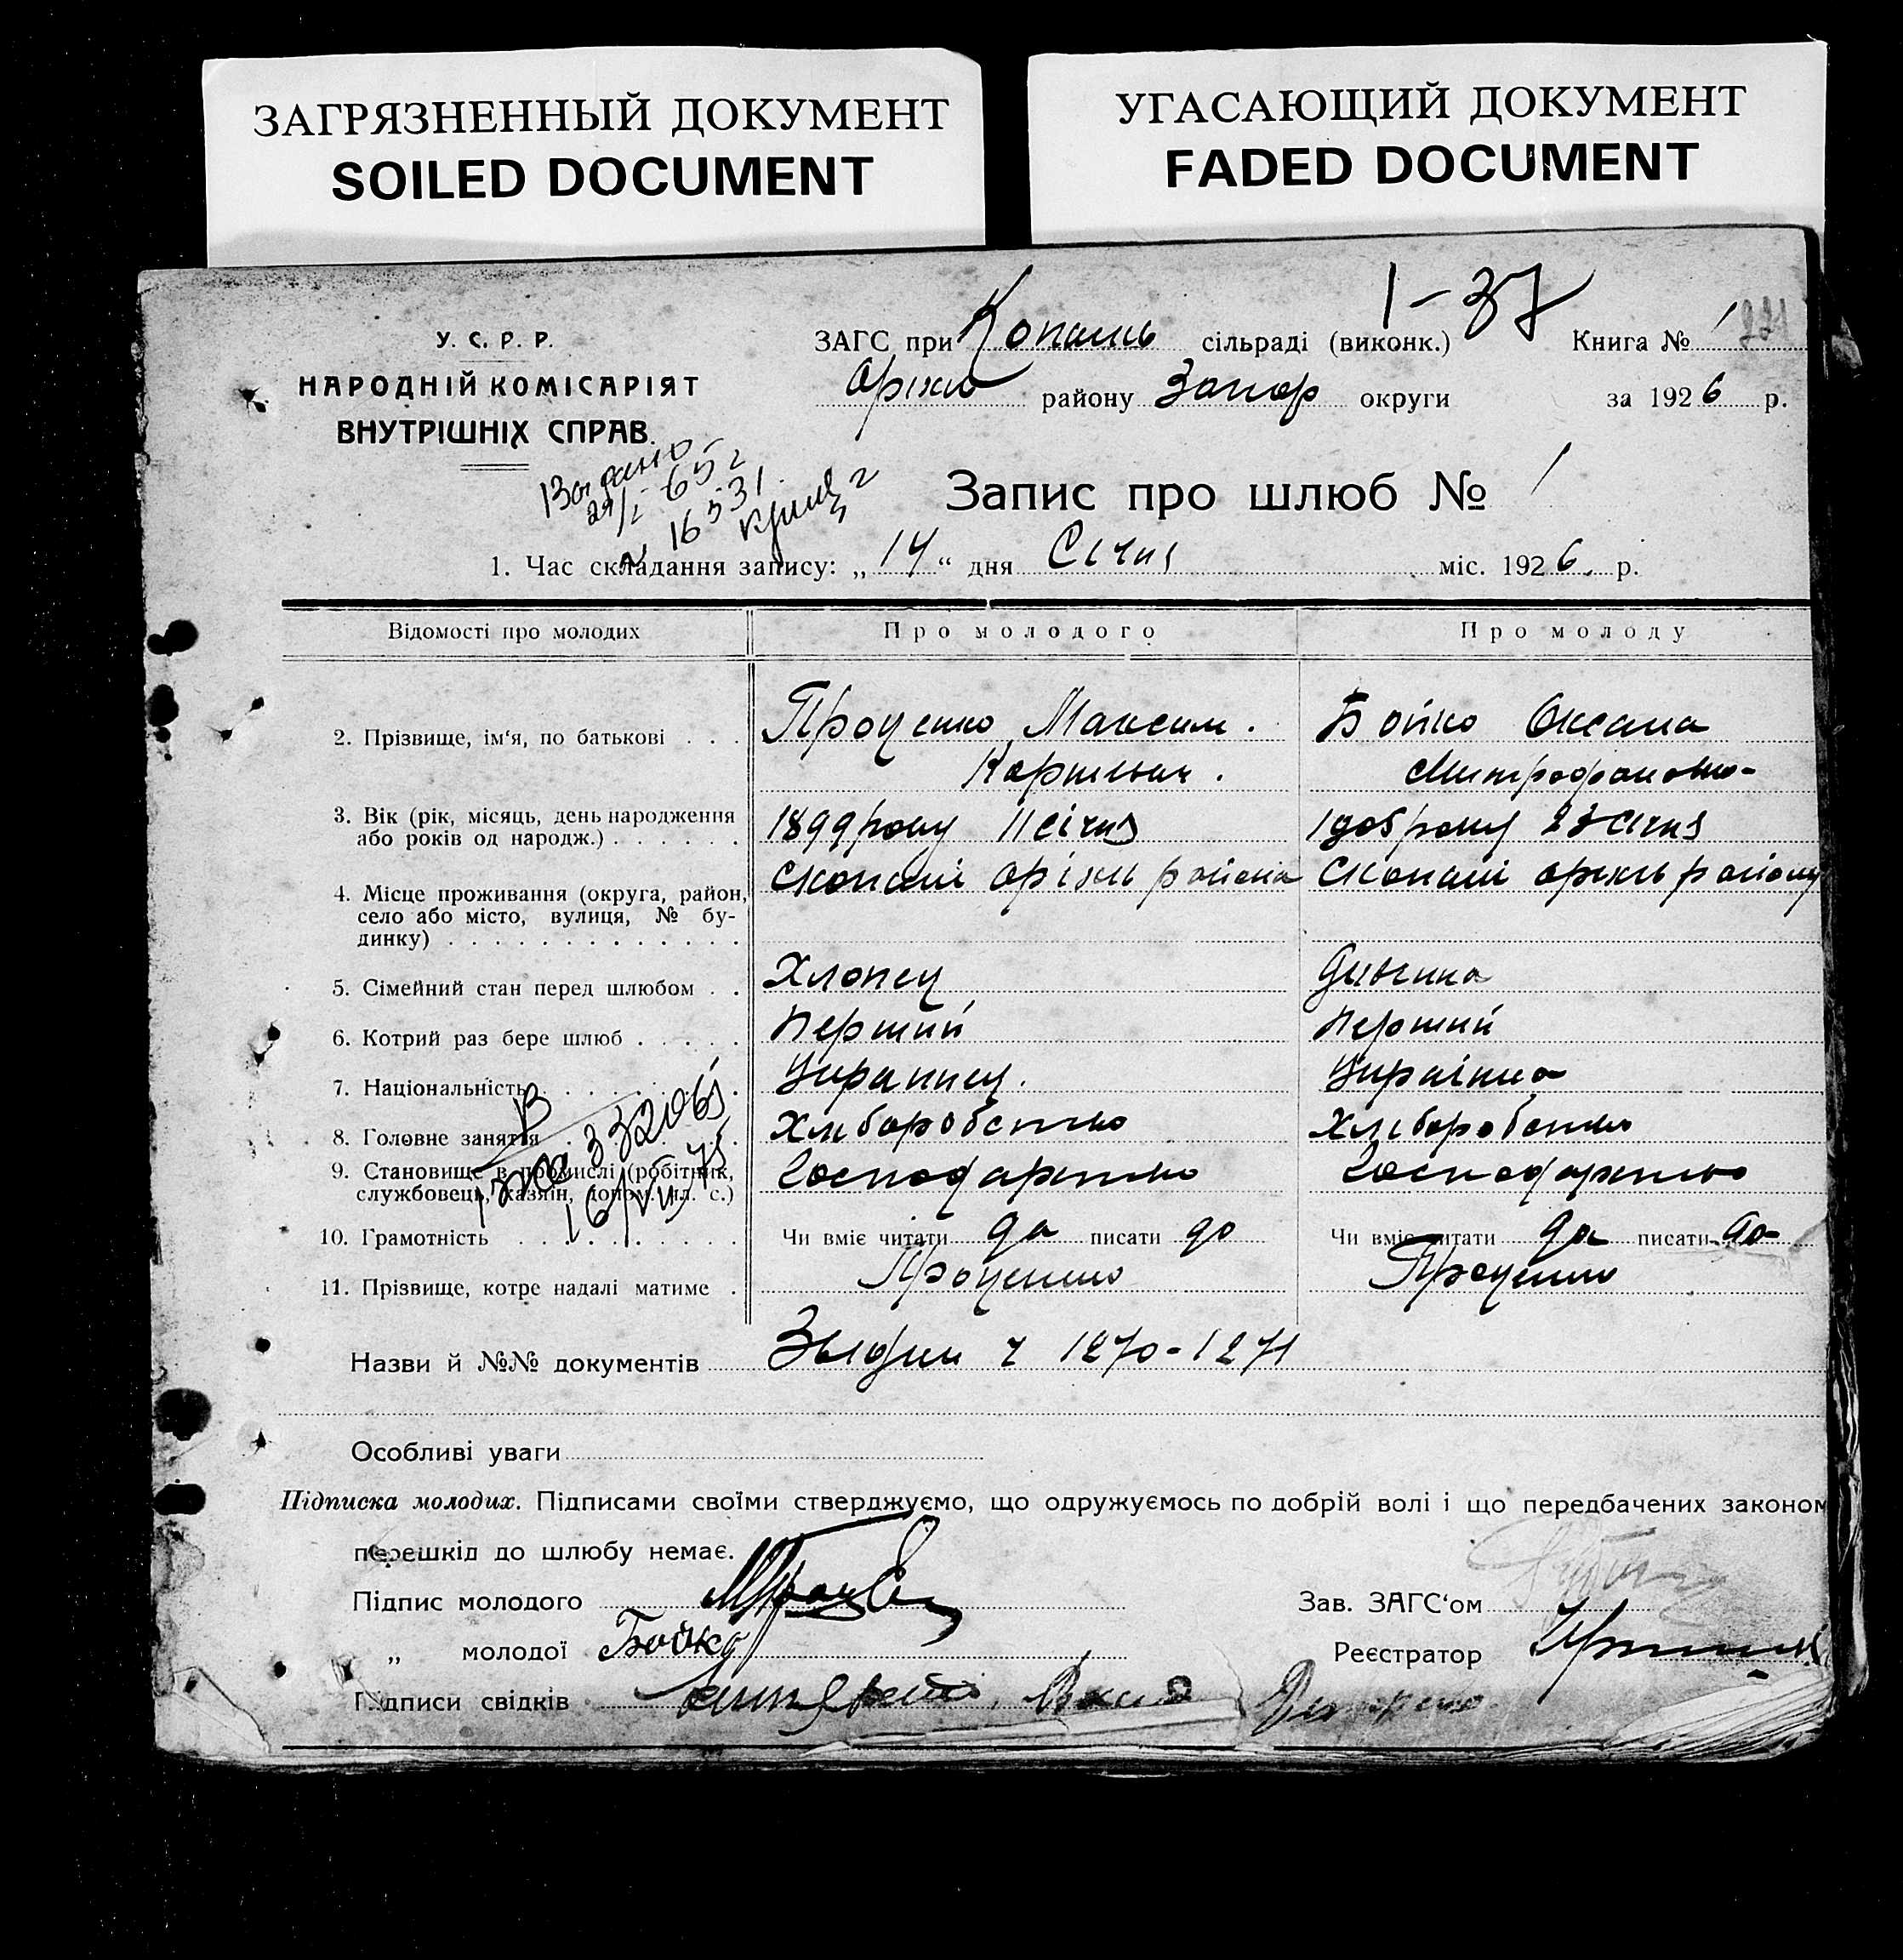 ЗАГРЯЗНЕННЫЙ ДОКУМЕНТ
SOILED DOCUMENT
УГАСАЮЩИЙ ДОКУМЕНТ
FADED DOCUMENT
1-37
У. С. Р. Р.
НАРОДНІЙ КОМІСАРІЯТ
ВНУТРІШНІХ СПРАВ.
ЗАГС при Копань сільраді (виконк.) Книга № 1
Оріхів району Запор округи за 1926 р.
65 г
16531
Запис про шлюб № 1
1. Час складання запису: „14“ дня Січня міс. 1926. р.
Відомості про молодих Про молодого Про молоду
2. Прізвище, ім‘я, по батькові . . . Проценко Максим. Бойко Оксана
Корнієвич. Митрофановно-
3. Вік (рік, місяць, день народження 1899 року 11 січня 1905 року 23 січня
або років од народж.) . . . . . .
4. Місце проживання (округа, район, С Копані Оріхів района С Копані Оріхів району
село або місто, вулиця, № бу-
динку) . . . . . . . . . . . . .
5. Сімейний стан перед шлюбом . . Хлопец Дивчина
6. Котрий раз бере шлюб . . . . . Перший Перший
7. Національність . . . . . . . . Украинец. Українка
8. Головне заняття . . . . . . . Хлиборобство Хлиборобство
9. Становище в промислі (робітник, Господарство Господарство
службовець, хазяїн, допом. чл. с.)
332065
16/VII 75
10. Грамотність . . . . . . . . . Чи вміє читати да писати да Чи вміє читати да писати да-
11. Прізвище, котре надалі матиме . Проценко Проценко
Назви й №№ документів 1270-1271
Особливі уваги
Підписка молодих. Підписами своїми стверджуємо, що одружуємось по добрій волі і що передбачених законом
перешкід до шлюбу немає.
Підпис молодого Зав. ЗАГС‘ом
„ молодої Бойко Реєстратор
Підписи свідків